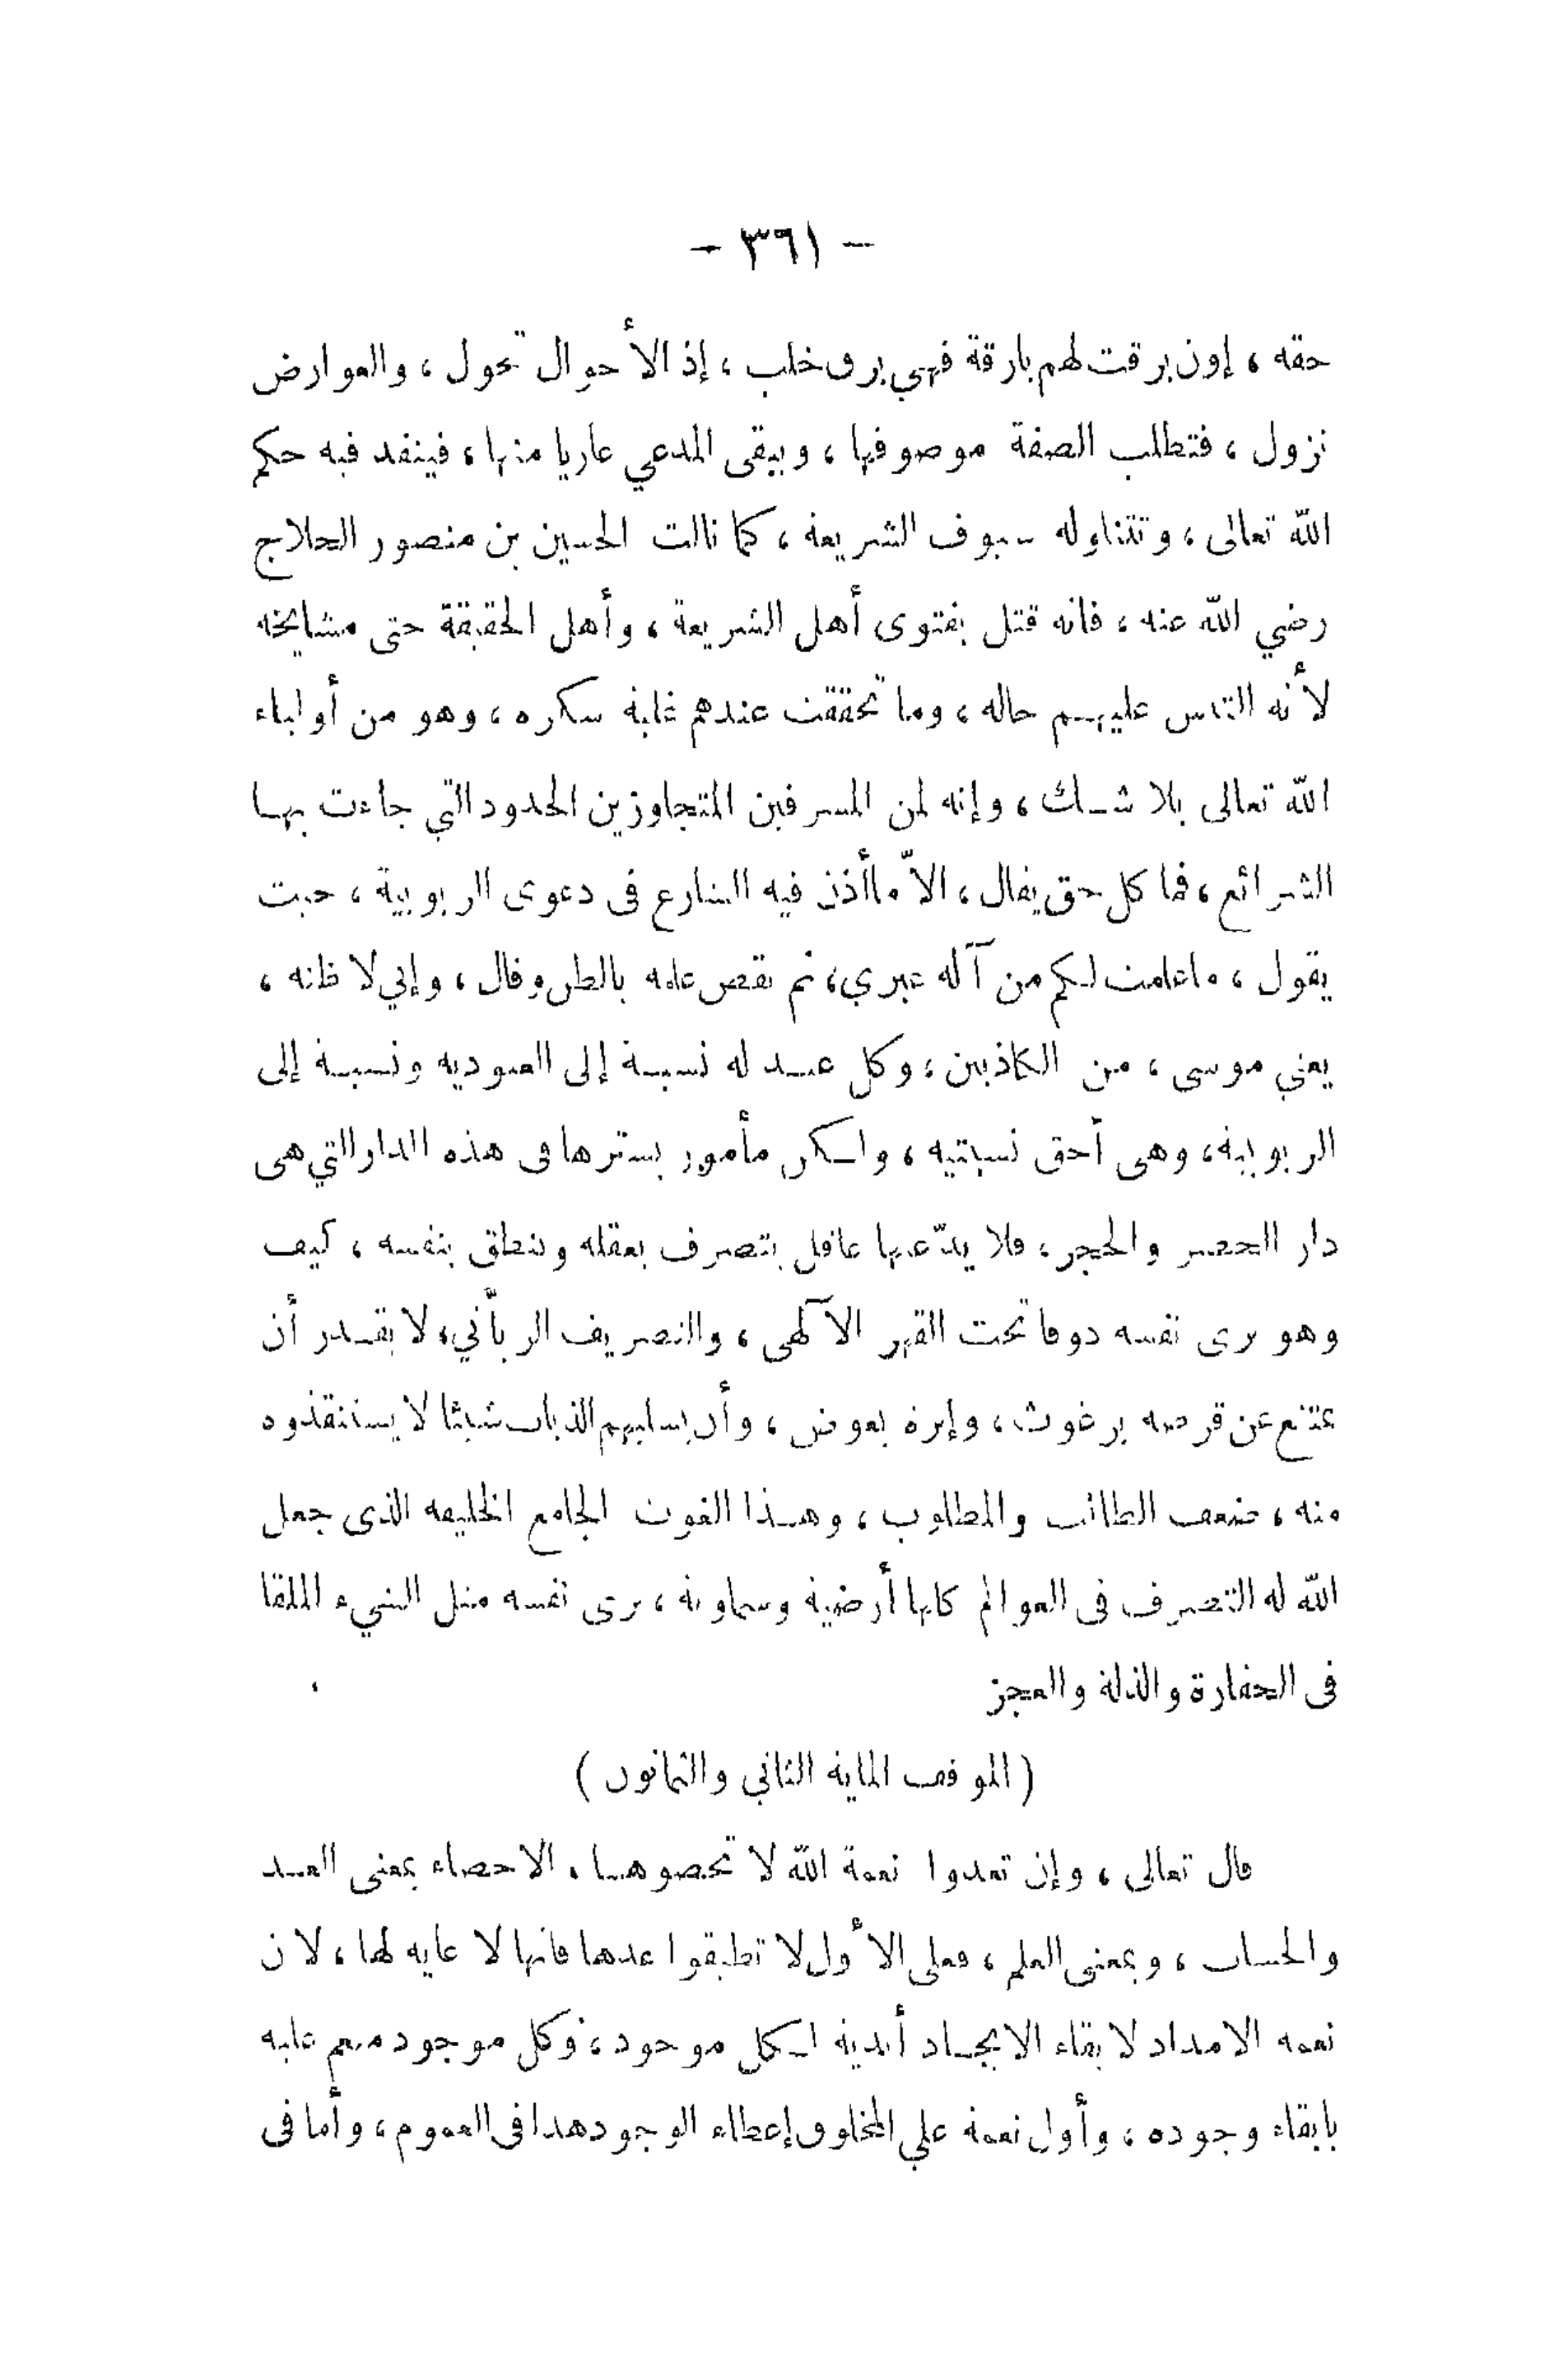 - ٣٦١ -
حقه ، إون برقت لهم بارقة فهي برق خلب ، إذ الأحوال تحول ، والعوارض
تزول ، فتطلب الصفة موصوفها ، ويبقى المدعي عاريا منها ، فينفد فيه حكم
الله تعالى ، وتتناوله سيوف الشريعة ، كما نالت الحسين بن منصور الحلاج
رضي الله عنه ، فانه قتل بفتوى أهل الشريعة ، وأهل الحقيقة حتى مشايخه
لأنه التبس عليهم حاله ، وما تحققت عندهم غلبة سكره ، وهو من أولياء
الله تعالى بلا شك ، وإنه لمن المسرفين المتجاوزين الحدود التي جاءت بها
الشرائع ، فما كل حق يقال ، الاّ ما أذن فيه الشارع في دعوى الربوبية ، حيث
يقول ، ما علمت لكم من آله غيري ، ثم نقص علمه بالظن وقال ، وإني لا ظنه ،
يعني موسى ، من الكاذبين ، وكل عبد له نسبة إلى العبودية ونسبة إلى
الربوبية ، وهى أحق نسبتيه ، ولكن مأمور بسترها فى هذه الدار التي هى
دار الحصر والحجر ، فلا يدّعيها عاقل يتصرف بعقله وينطق بنفسه ، كيف
وهو يرى نفسه دوما تحت القهر الآلهى ، والتصريف الربّاني ، لا يقدر أن
يمتنع عن قرصه برغوث ، وإبرة بعوض ، وأن يسلبهم الذباب شيئا لا يستنقذوه
منه ، ضعف الطالب والمطلوب ، وهذا الغوث الجامع الخليفة الذى جعل
الله له التصرف فى العوالم كلها أرضية وسماوية ، يرى نفسه مثل الشيء الملقا
فى الحقارة والذلة والعجز
( الموقف الماية الثاني والثمانون )
قال تعالى ، وإن تعدوا نعمة الله لا تحصوها ، الاحصاء بمعنى العد
والحساب ، وبمعنى العلم ، فعلى الأول لا تطيقوا عدها فانها لا غاية لها ، لان
نعمة الامداد لا بقاء الايجاد أبدية لكل موجود ، وكل موجود منعم عليه
بابقاء وجوده ، وأول نعمة علي المخلوق إعطاء الوجود هذا فى العموم ، وأما فى